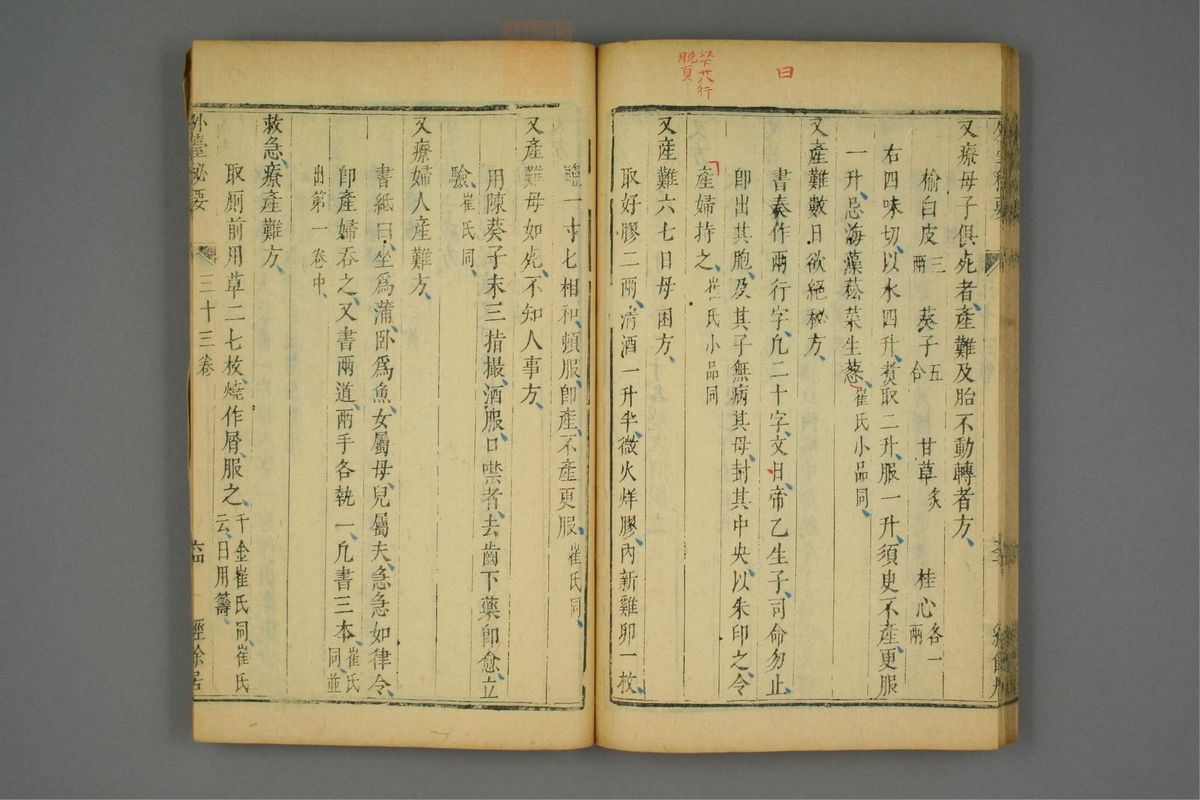 曰
以下廿八行
脫頁
又療母子俱死者產難及胎不動轉者方
榆白皮三兩 葵子五合 甘草炙 桂心各一兩
右四味切以水四升煑取二升服一升須臾不產更服
一升忌海藻菘菜生葱崔氏小品同
又產難數日欲絕秘方
書奏作兩行字凢二十字文日帝乙生子司命勿止
卽出其胞及其子無病其母封其中央以朱印之令
產婦持之崔氏小品同
又產難六七日母困方
取好膠二兩清酒一升半微火烊膠內新雞卵一枚
鹽一寸匕相和頓服卽產不產更服崔氏同
又產難母如死不知人事方
用陳葵子末三指撮酒服口噤者去齒下藥卽愈立
驗崔氏同
又療婦人產難方
書紙曰坐爲蒲卧爲魚女屬母兒屬夫急急如律令
卽產婦吞之又書兩道兩手各執一凢書三本崔氏同並
出第一卷中
救急療產難方
取厠前用草二七枚燒作屑服之千金崔氏同崔氏云日用籌
外臺秘要
三十三卷
六四
經餘居